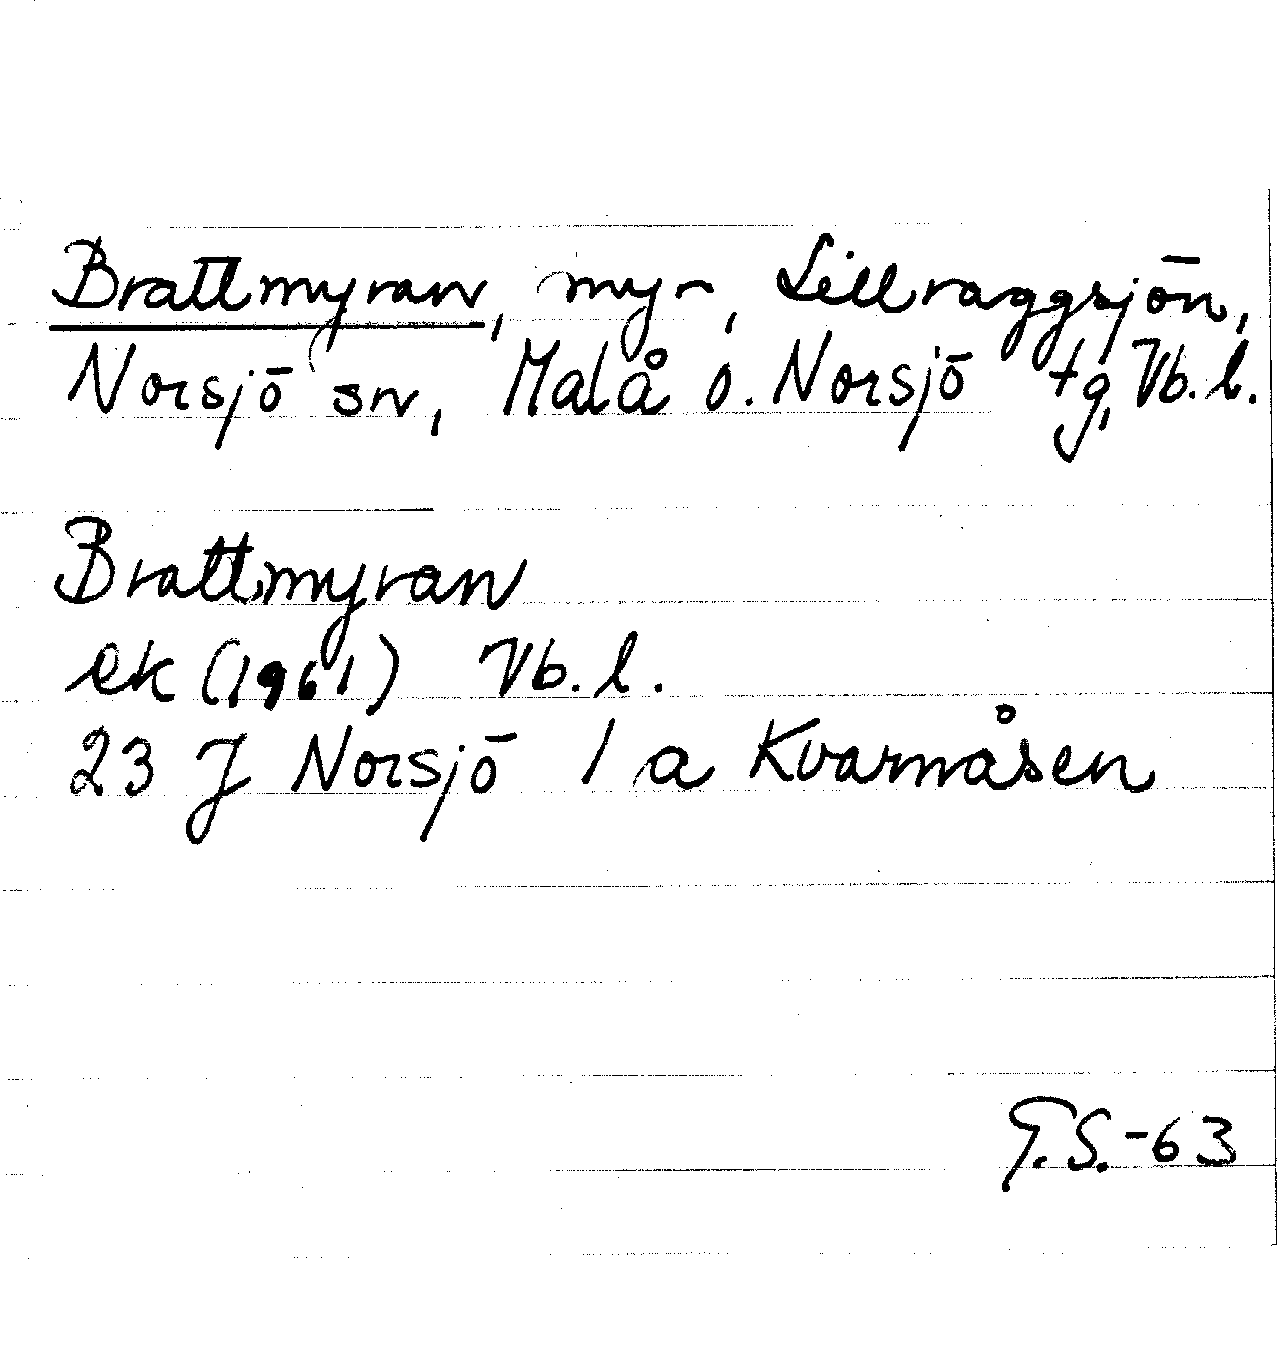 Brattmyran, myr, Lillraggsjön,
Norsjö sn, Malå o. Norsjö tg, Vb. l.
Brattmyran
ek (1961) Vb. l.
23 J Norsjö 1 a Kvarnåsen
G.S.-63